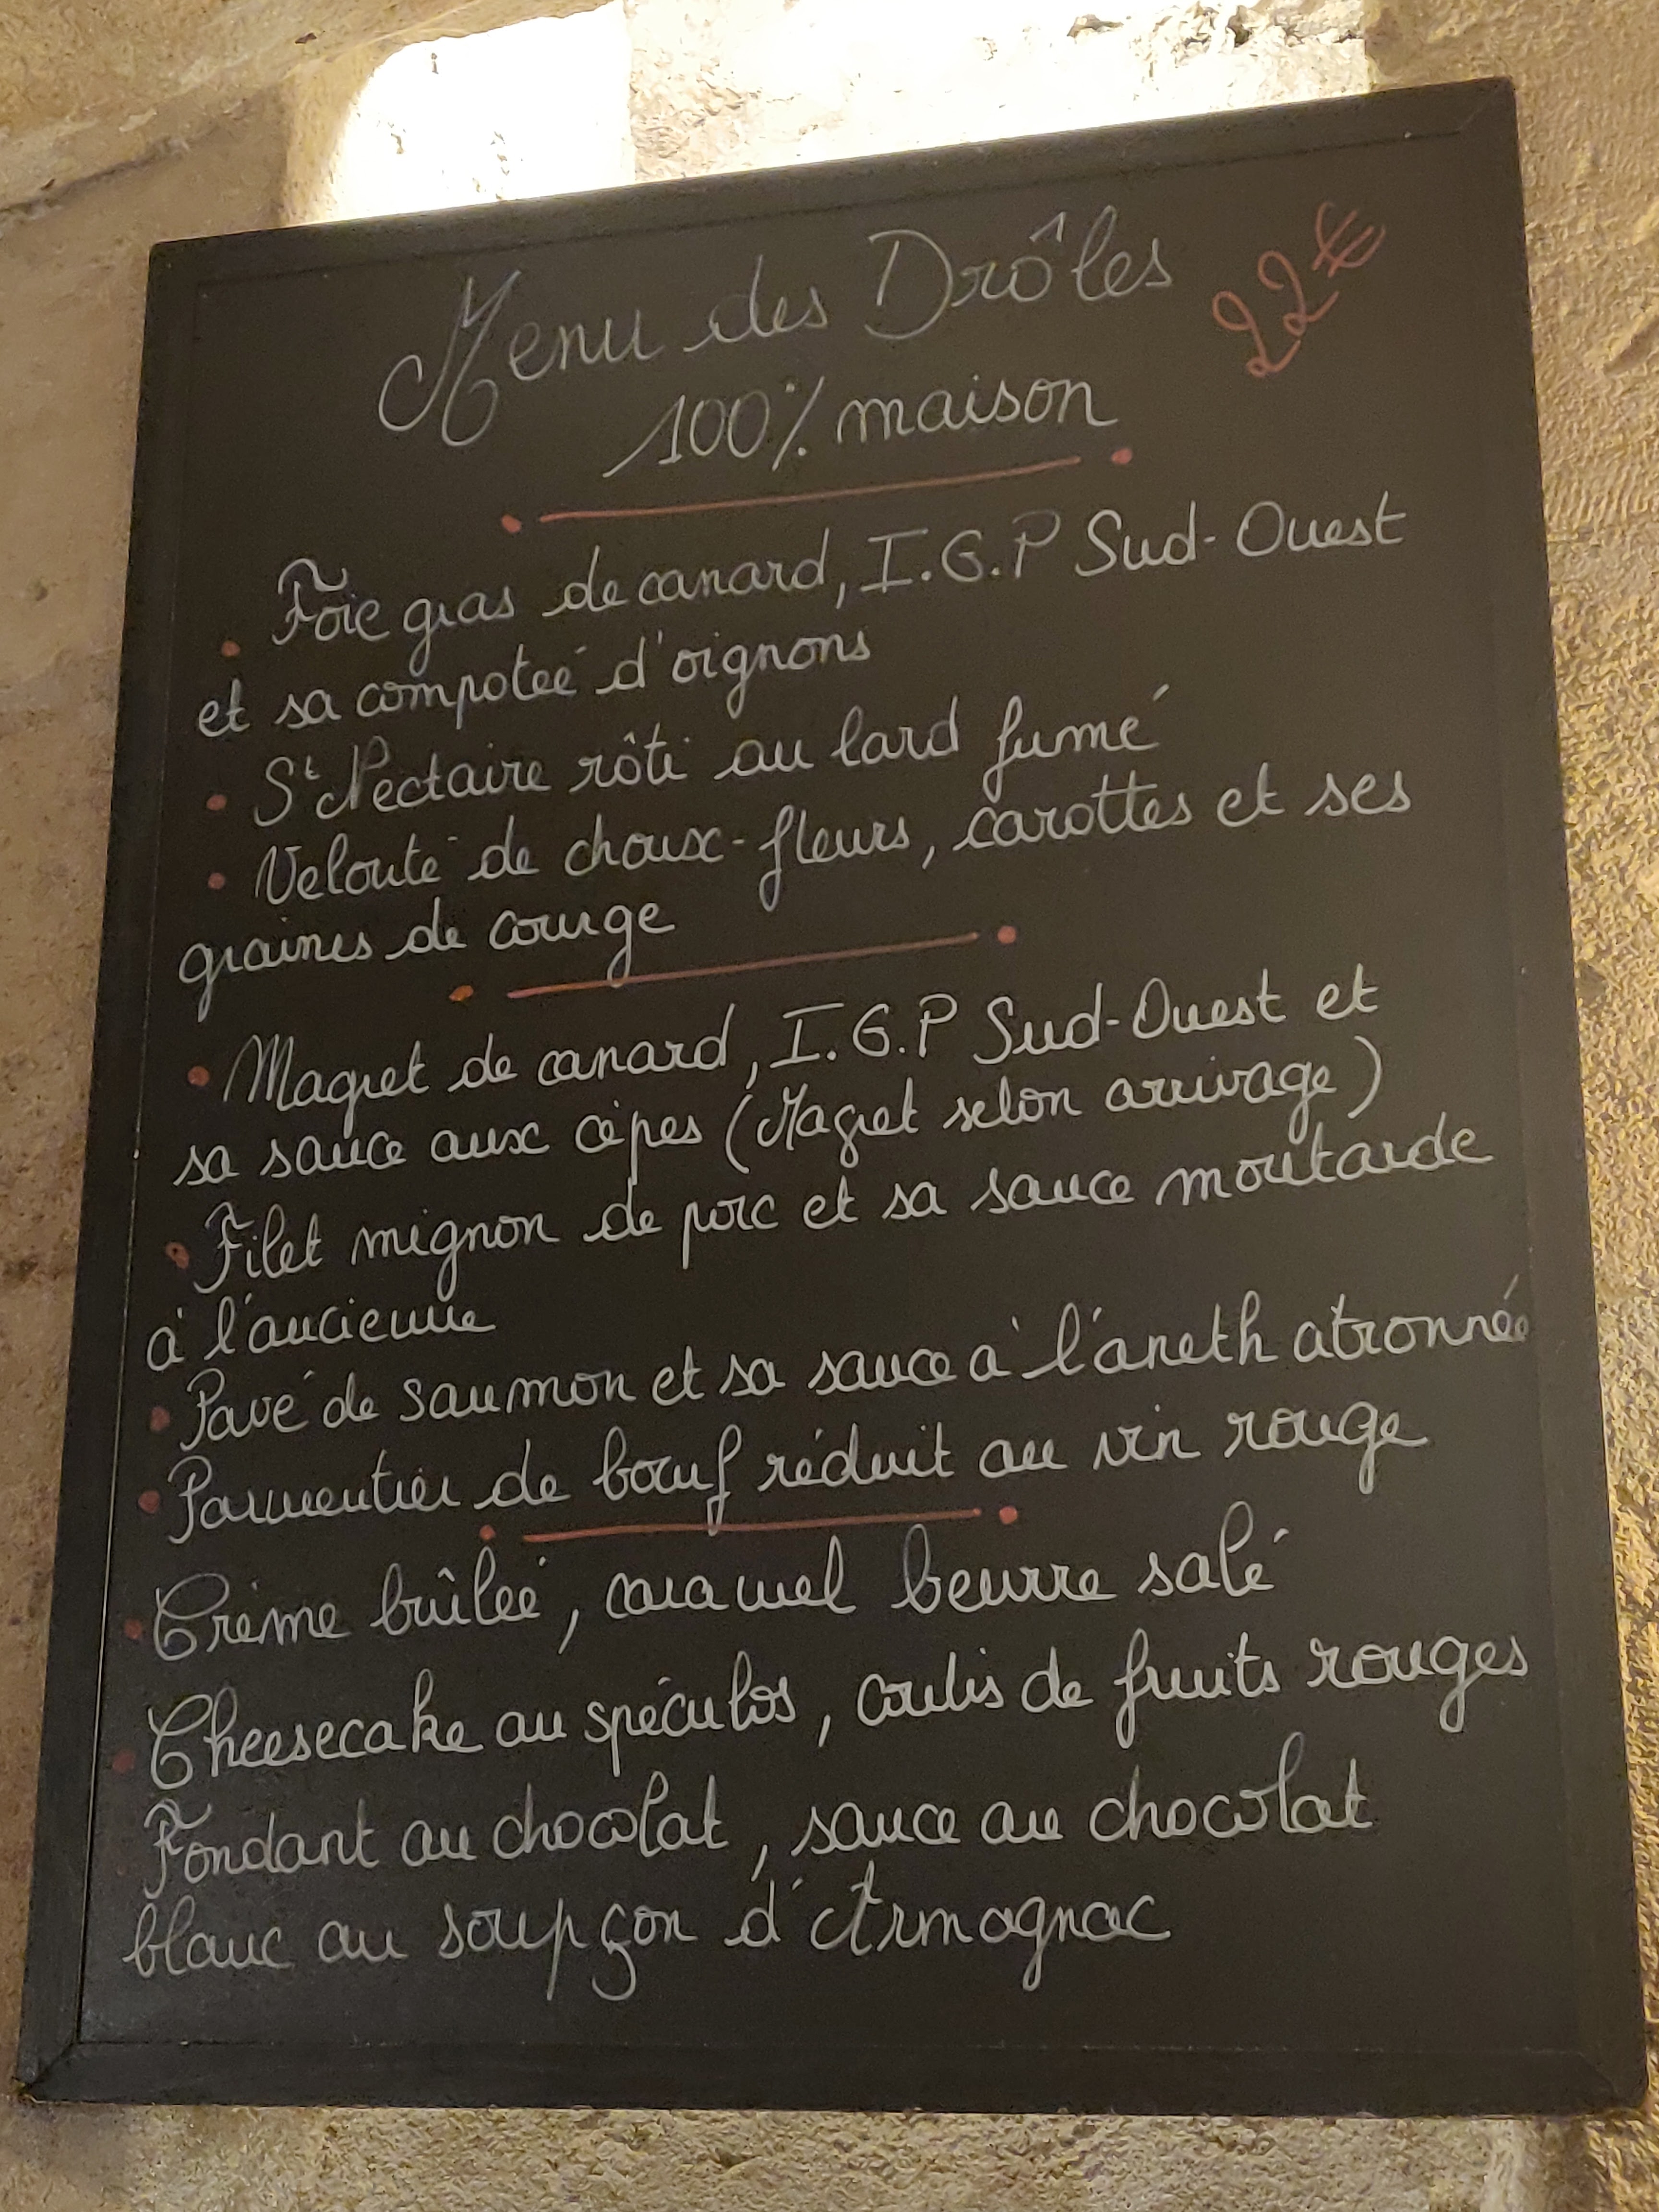 Menu des Drôles 22€
100% maison
• Foie gras de canard, I.G.P Sud-Ouest
et sa compoteé d'oignons
• St Nectaire rôti au lard fumé
• Velouté de choux-fleurs, carottes et ses
graines de courge
• Magret de canard, I.G.P Sud-Ouest et
sa sauce aux cèpes (Magret selon arrivage)
• Filet mignon de porc et sa sauce moutarde
à l'ancienne
• Pavé de saumon et sa sauce à l'aneth atronnée
• Parmentier de bœuf réduit au vin rouge
• Crème brûleé, caramel beurre salé
• Cheesecake au spéculos, coulis de fruits rouges
Fondant au chocolat, sauce au chocolat
blanc au soupçon d'Armagnac